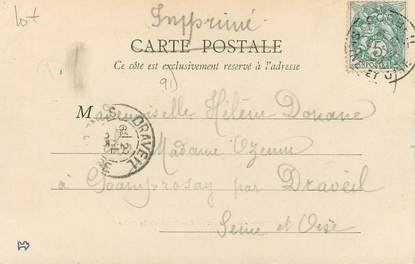 lot
Imprimé
CARTE POSTALE
Ce côté est exclusivement reservé à l'adresse
91
Mademoiselle Hélène Douane
Madame Ozenne
à Champrosay par Draveil
Seine et Oise
DRAVEIL
5